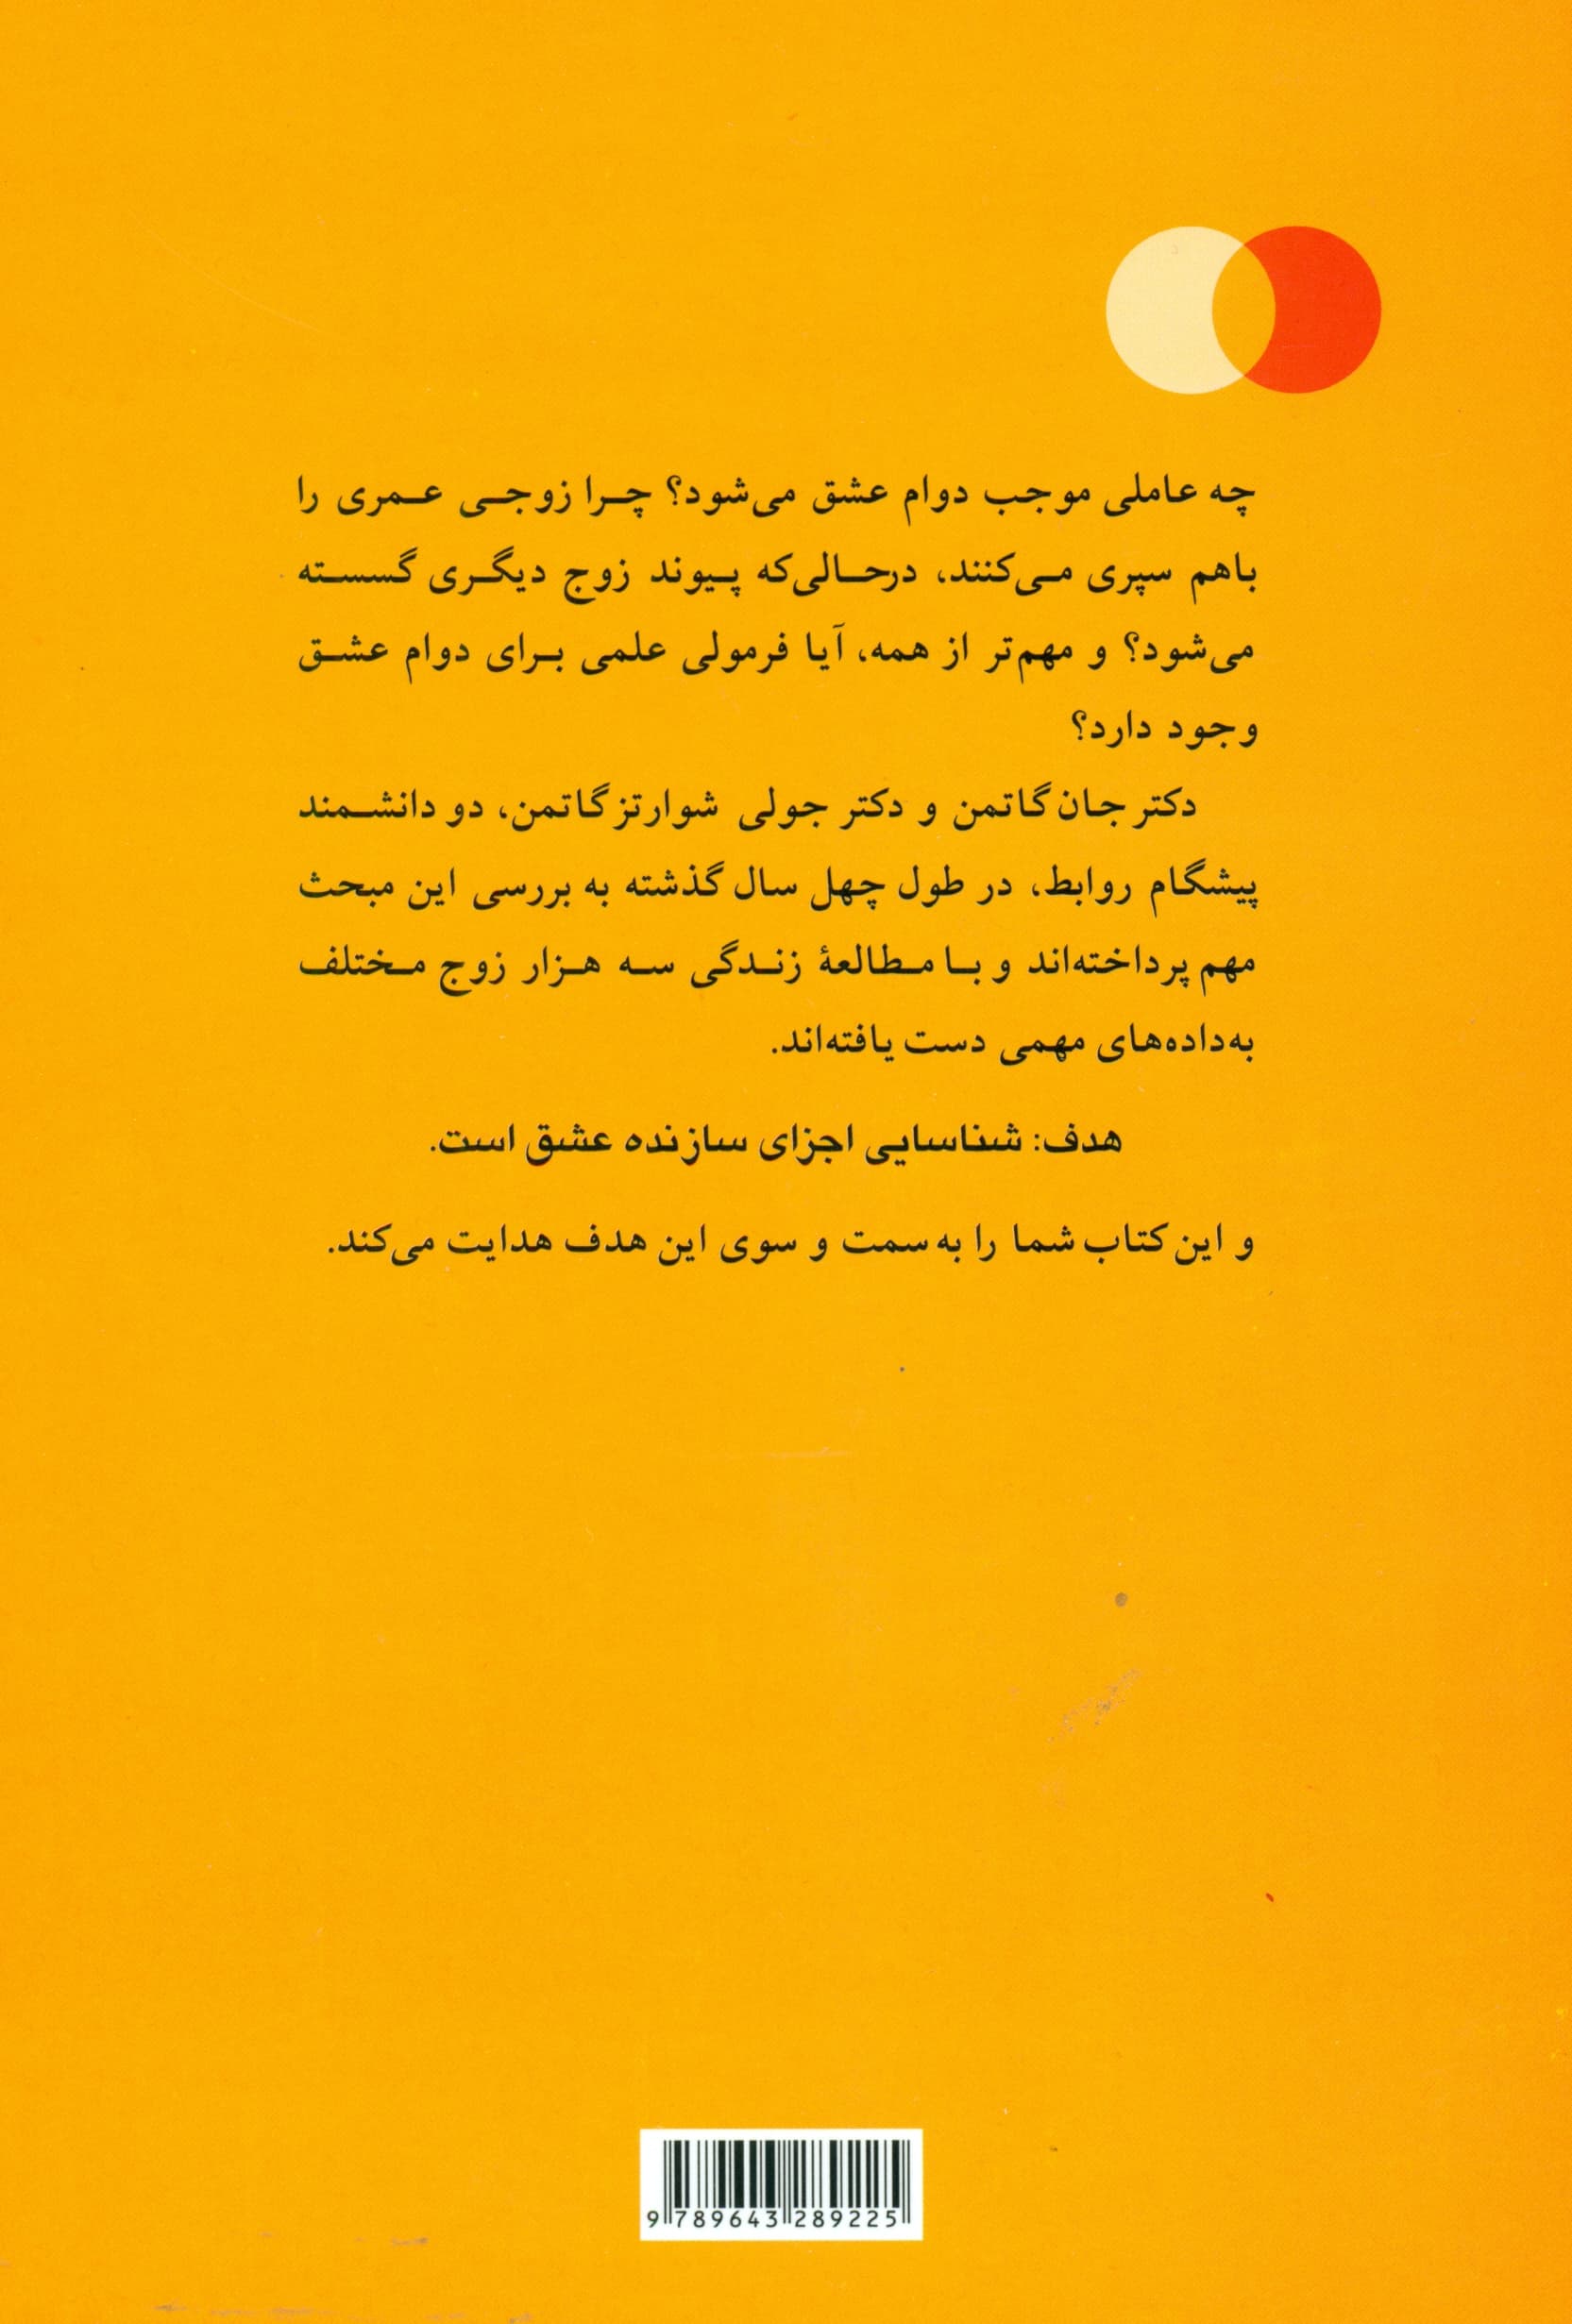 چه عاملی موجب دوام عشق می‌شود؟ چرا زوجی عمری را
باهم سپری می‌کنند، درحالی‌که پیوند زوج دیگری گسسته
می‌شود؟ و مهم‌تر از همه، آیا فرمولی علمی برای دوام عشق
وجود دارد؟
دکتر جان گاتمن و دکتر جولی شوارتز گاتمن، دو دانشمند
پیشگام روابط، در طول چهل سال گذشته به بررسی این مبحث
مهم پرداخته‌اند و با مطالعهٔ زندگی سه هزار زوج مختلف
به‌داده‌های مهمی دست یافته‌اند.
هدف: شناسایی اجزای سازنده عشق است.
و این کتاب شما را به سمت و سوی این هدف هدایت می‌کند.
9 789643 289225